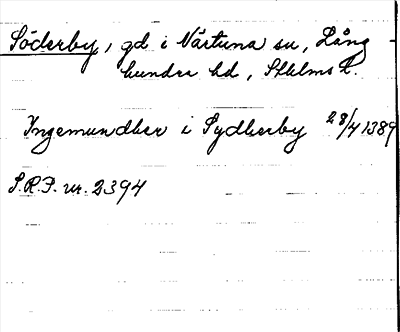 Söderby, gd i Närtuna sn, Lång
hundra hd, Sthlms l.
Ingemundher i Sydherby 28/4 1389
S.R.P. nr. 2394